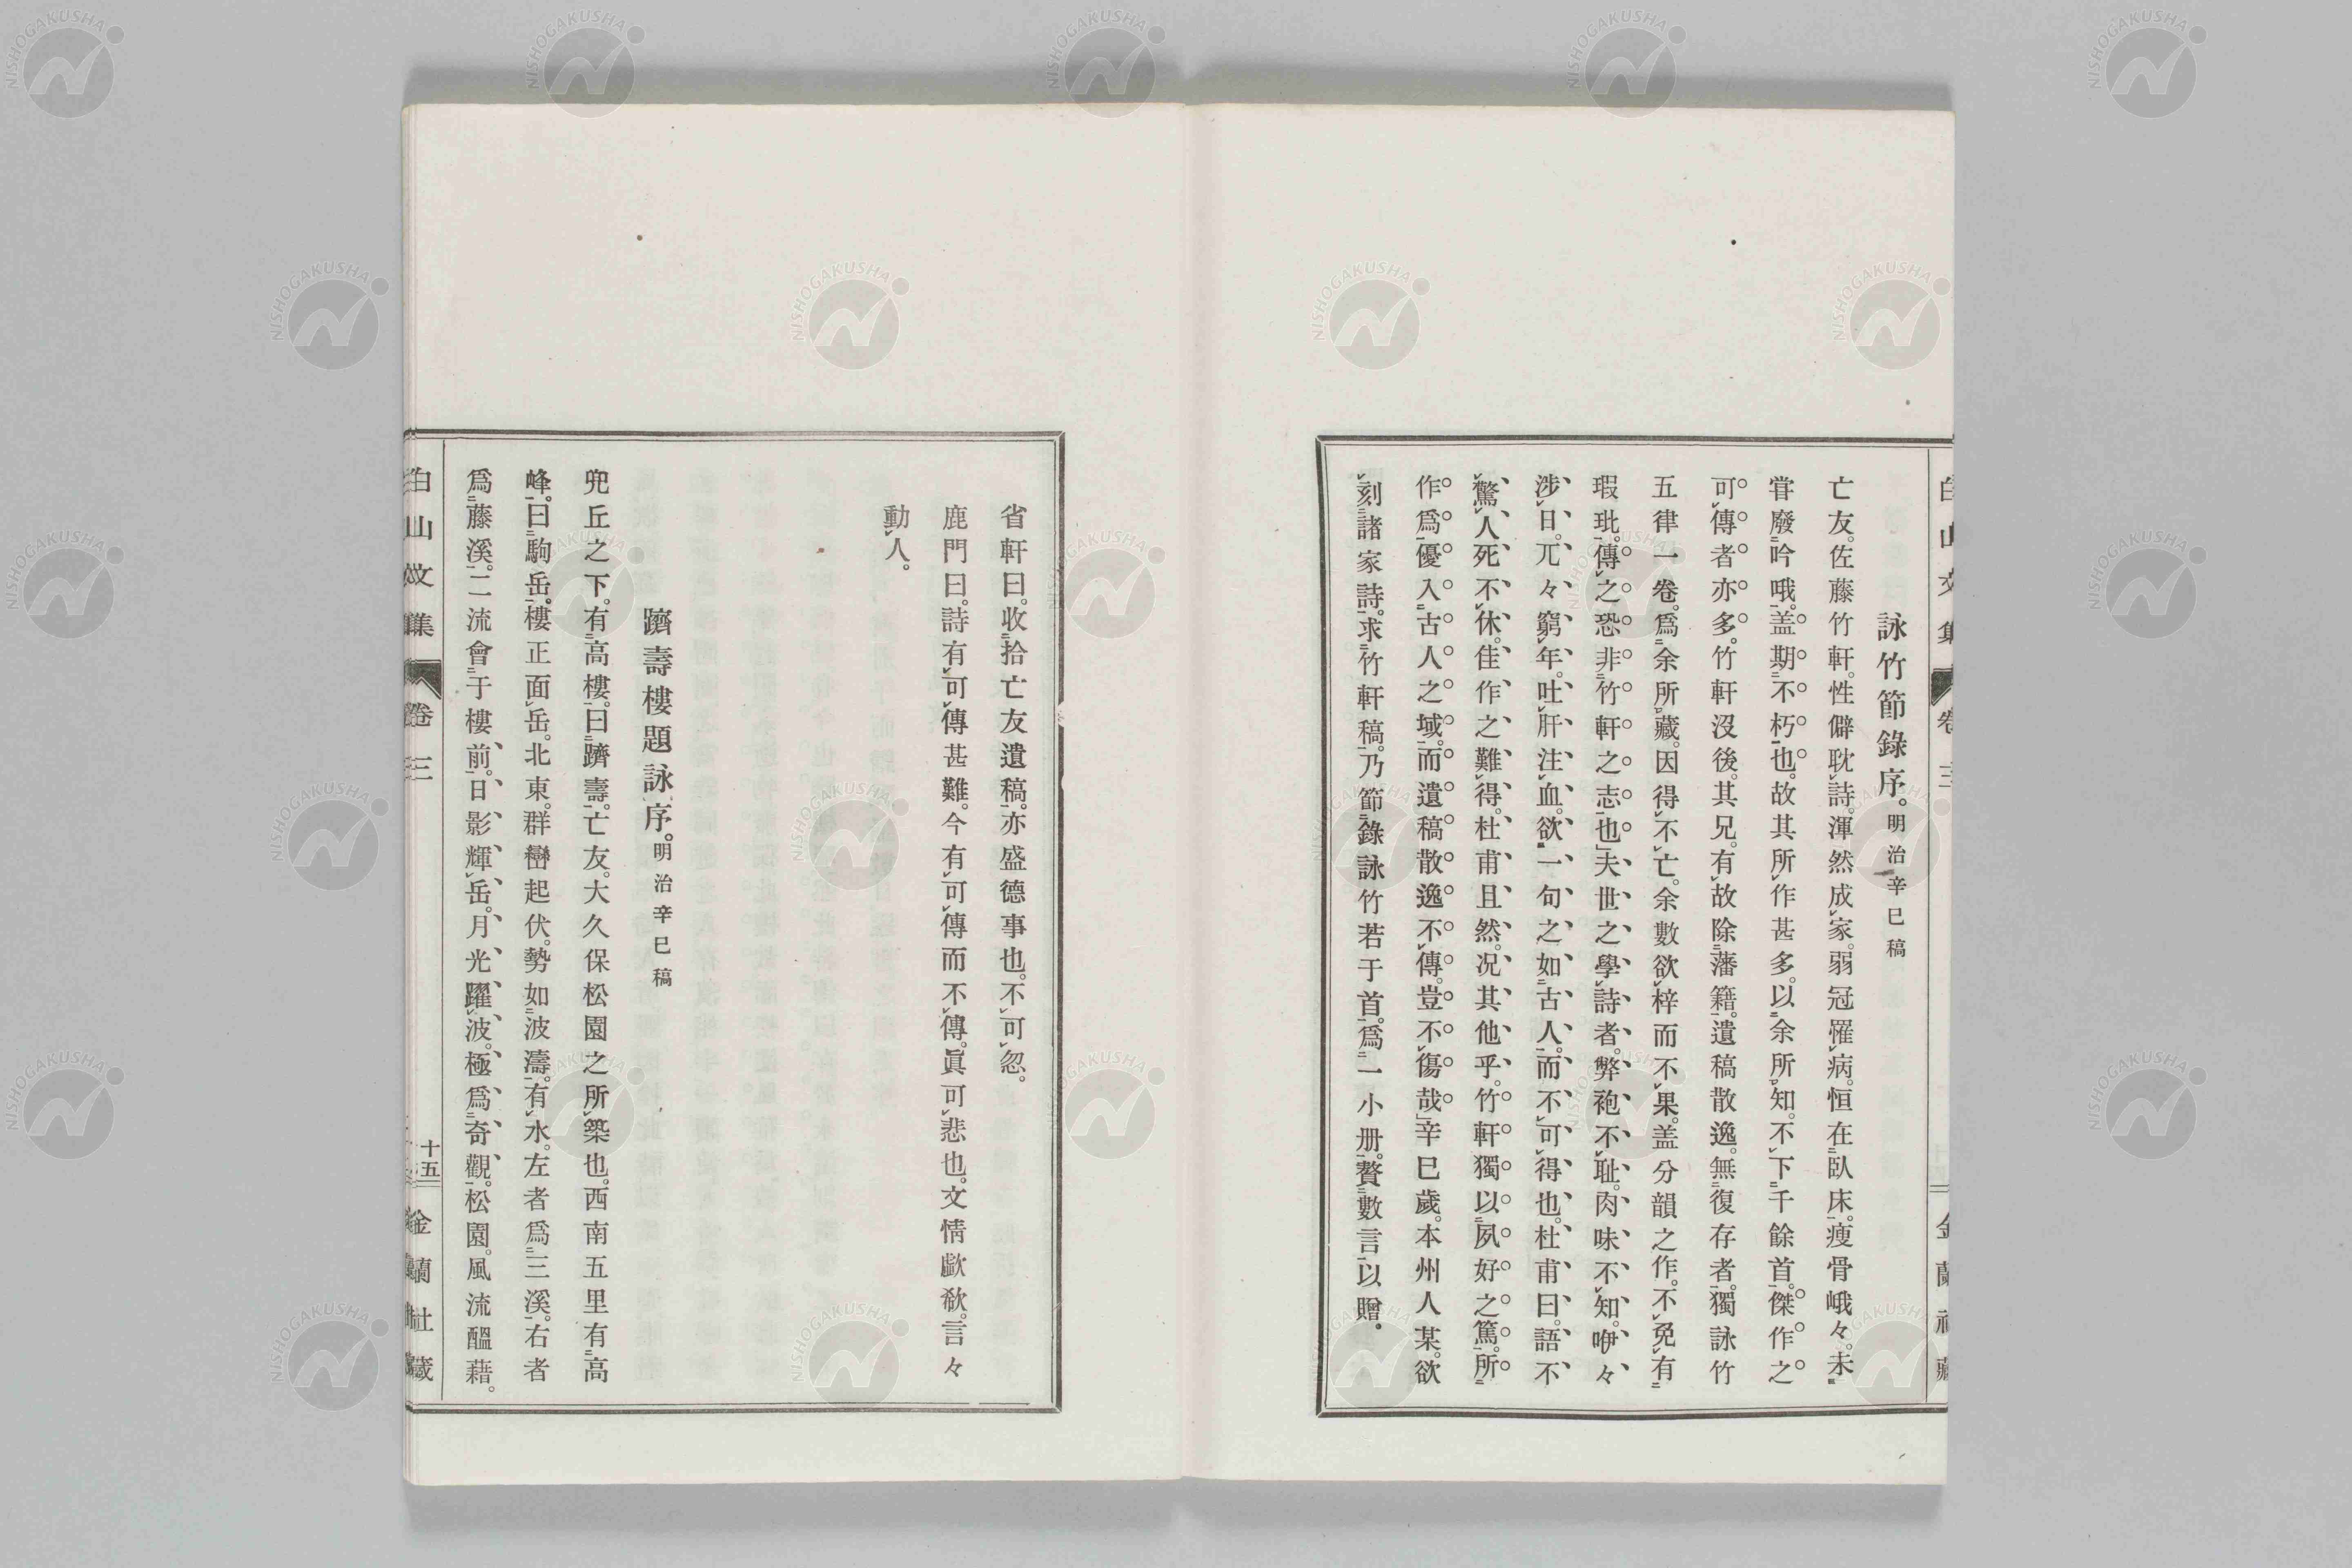 詠竹節錄序。明治辛巳稿
亡友。佐藤竹軒。性僻耽詩。渾然成家。弱冠罹病。恒在臥床。瘦骨峨々。未
甞廢吟哦。盖期不朽也。故其所作甚多。以余所知。不下千餘首。傑作之
可傳者亦多。竹軒沒後。其兄。有故除藩籍。遺稿散逸。無復存者。獨詠竹
五律一卷。爲余所藏。因得不亡。余數欲梓而不果。盖分韻之作。不免有
瑕玼。傳之恐非竹軒之志也。夫世之學詩者。弊袍不耻。肉味不知。咿々
涉日。兀々窮年。吐肝注血。欲一句之如古人。而不可得也。杜甫曰。語不
驚人死不休。佳作之難得。杜甫且然。况其他乎。竹軒獨以夙好之篤。所
作爲優入古人之域。而遺稿散逸不傳。豈不傷哉。辛巳歲。本州人某。欲
刻諸家詩。求竹軒稿。乃節錄詠竹若干首。爲一小册。贅數言以贈。
省軒曰。收拾亡友遺稿。亦盛德事也。不可忽。
鹿門曰。詩有可傳甚難。今有可傳而不傳。眞可悲也。文情歔欷。言々
動人。
躋壽樓題詠序。明治辛巳稿
兜丘之下。有高樓。曰躋壽。亡友。大久保松園之所築也。西南五里有高
峰。曰駒岳。樓正面岳。北東。群巒起伏。勢如波濤。有水。左者爲三溪。右者
爲藤溪。二流會于樓前。日影輝岳。月光躍波。極爲奇觀。松園。風流醞藉。
白山文集 卷三 十五 金蘭社藏
NISHOGAKUSHA